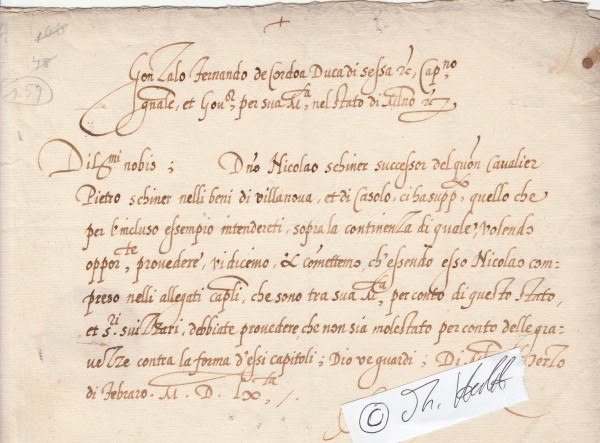 159
Gonzalo Fernando de Cordoa Duca di Sessa &c, Cap.no
g͞nale, et Gou.or, per sua M.tà, nel stato di Mil͞no &c
Dil.mi nobis; D͞no Nicolao schiner successor del quõn Cavalier
Pietro schiner nelli beni di villanova, et di Casolo, ci ha supp.to, quello che
per l'incluso essempio intendereti, sopra la continenza di quale, volendo
oppor.te, provedere, vi dicemo, & comettemo, ch'essendo esso Nicolao com-
preso nelli allegati cap͞li, che sono tra sua M.tà, per conto di questo stato,
et s.ri suizzari, debbiate provedere, che non sia molestato per conto delle gra-
vezze contra la forma d'essi capitoli; Dio ve guardi; Di
di Febraro. M. D. lx.ta
© Th.